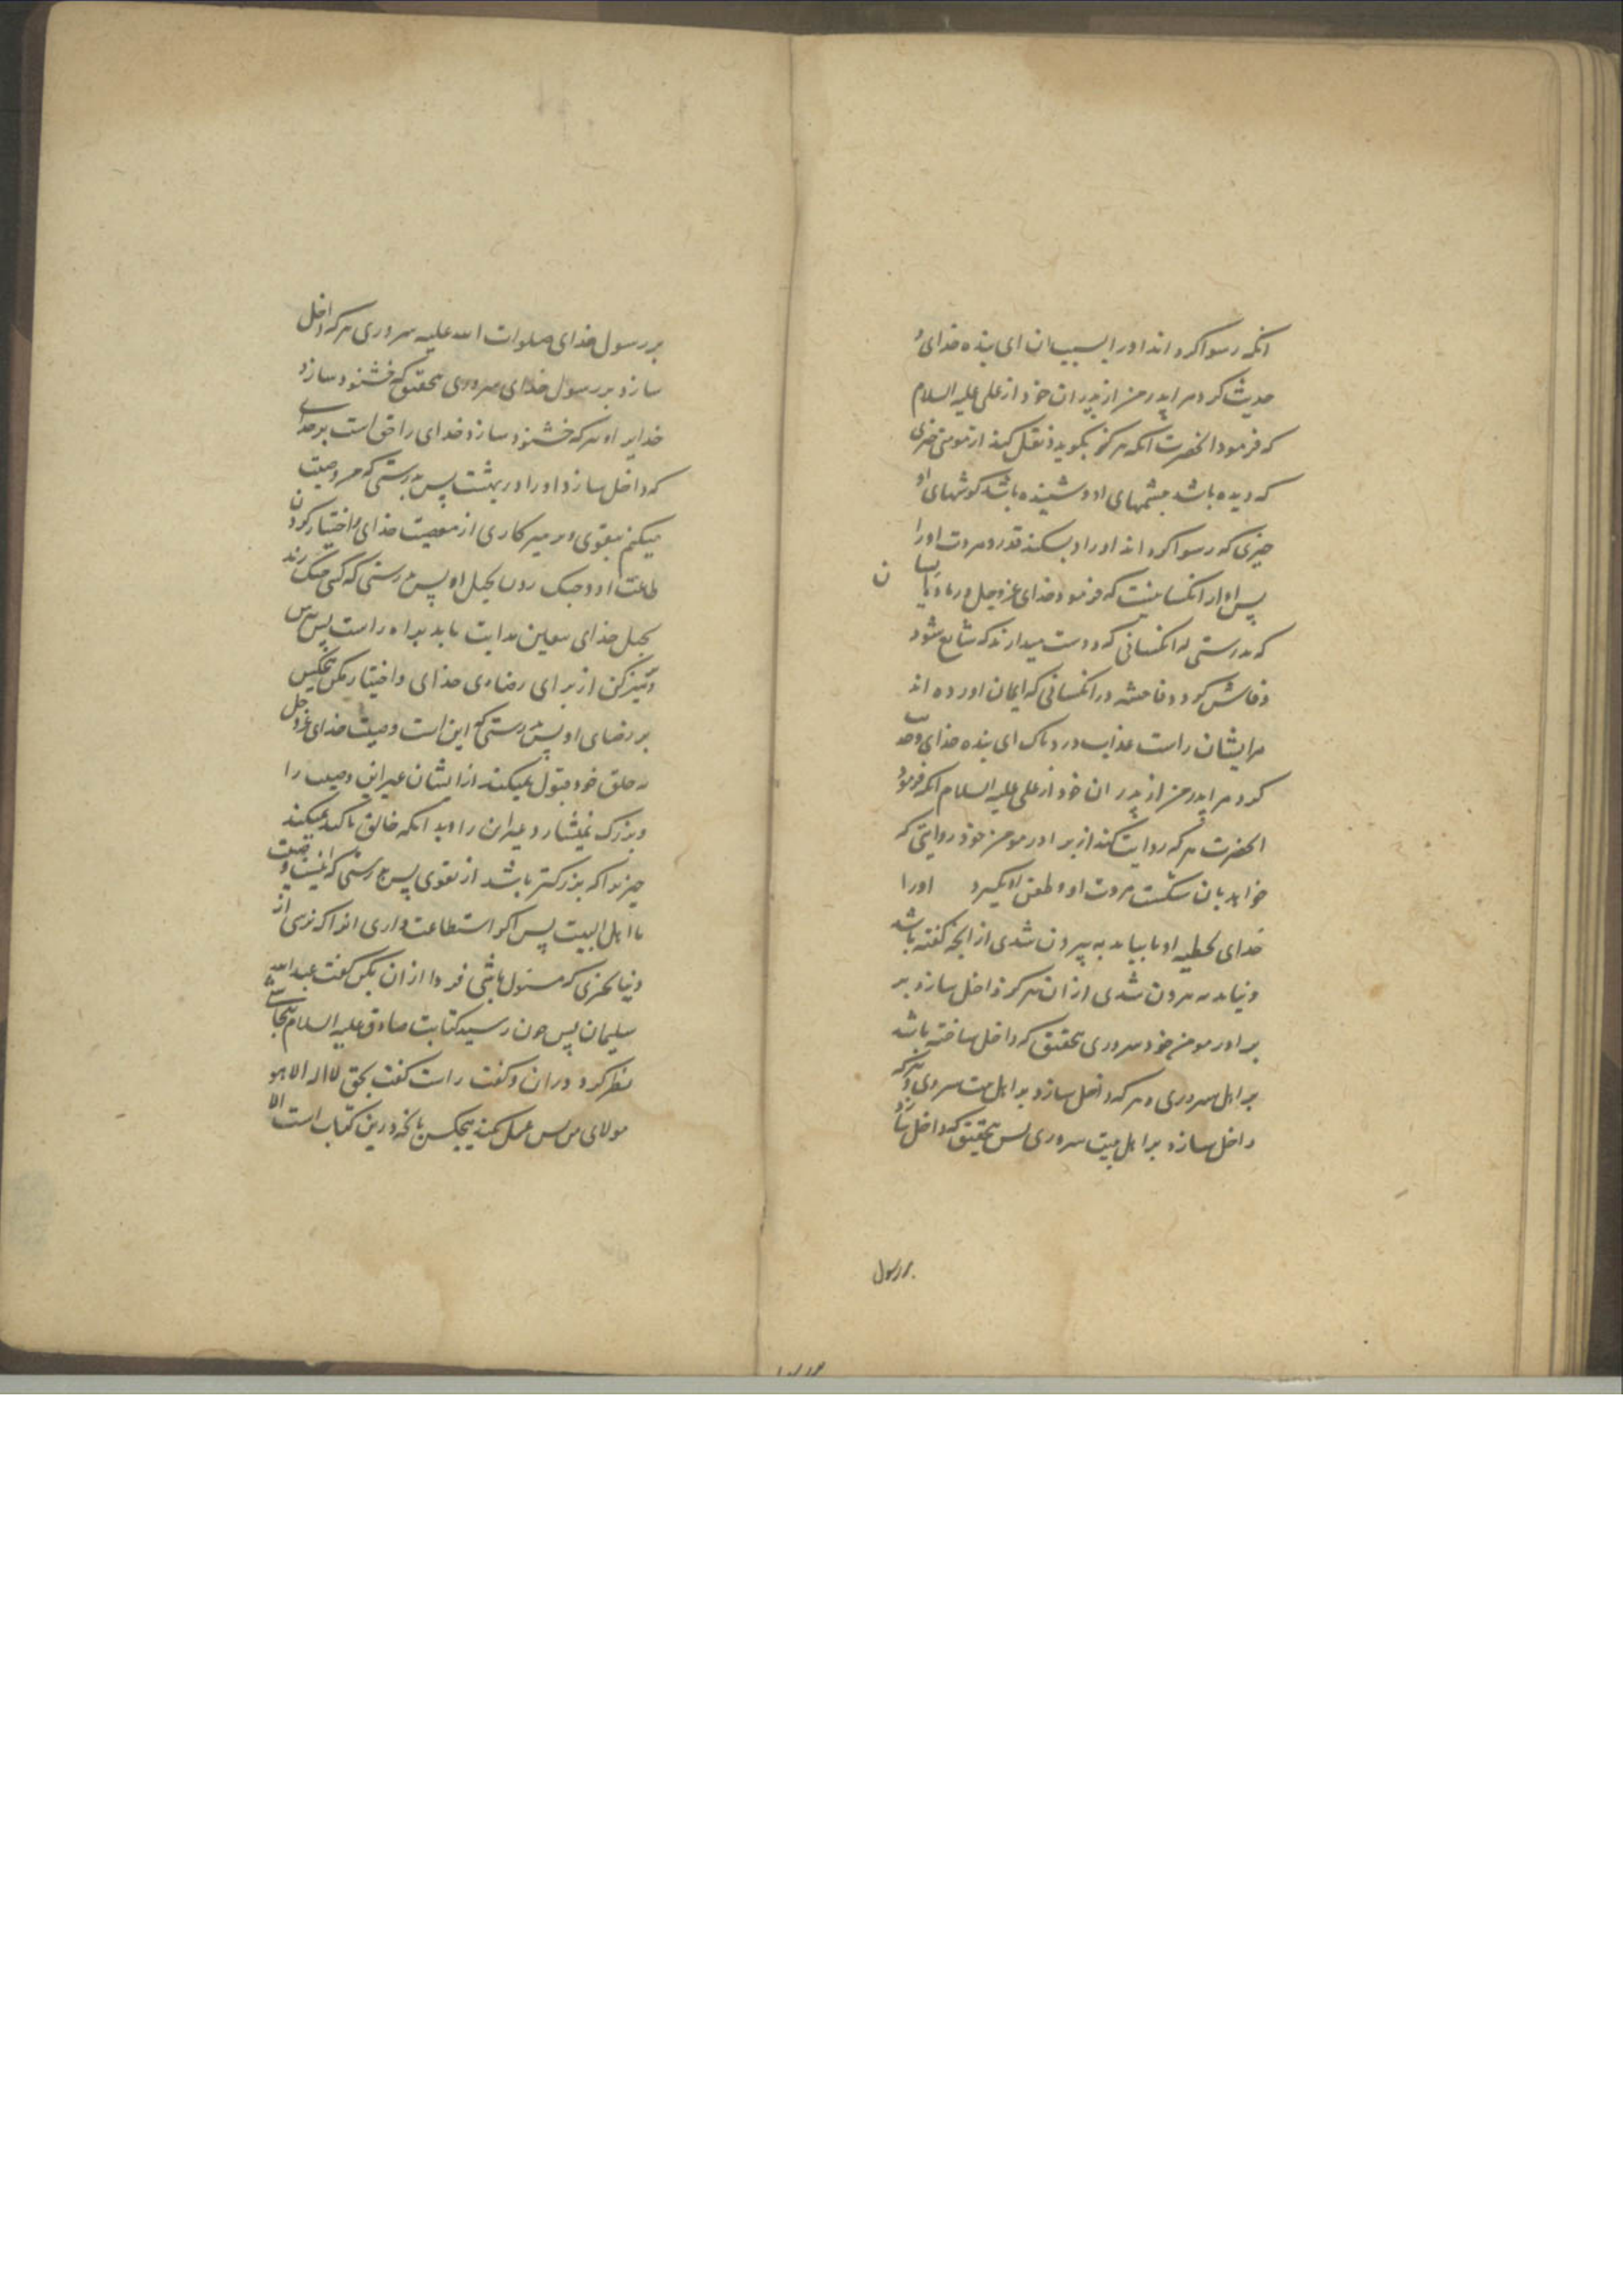 انکه رسوا کرداند او را بسبب ان ای بنده خدای و
حدیث کرد مرا پدر من از پدران خود از علی علیه السلام
که فرمود انحضرت انکه هر که بگوید و نقل کند از مومنی چیزی
که دیده باشد چشمهای او و شنیده باشد کوشهای او
چیزی که رسوا کرداند او را و بشکند قدر و مروت او را
پس او از انکسانیست که فرمود خدای عزوجل در
که بدرستی که انکسانی که دوست میدارند که شایع شود
و فاش کردد فاحشه در انکسانی که ایمان اورده اند
مر ایشان راست عذاب دردناک ای بنده خدای و حدیث
کرد مرا پدر من از پدران خود از علی علیه السلام انکه فرمود
انحضرت هر که روایت کند از برادر مومن خود روایتی که
خواهد بان شکست مروت او و طعن او بگیرد او را
خدای بخطیه او تا بیاید به بیرون شدی از انچه کفته باشد
و نیاید به بیرون شدی از ان هرکز و هر که داخل سازد بر
برادر مومن خود سروری بتحقیق که داخل ساخته باشد
بر اهل سروری و هر که داخل سازد بر اهل بیت سروری و هر که
داخل سازد بر اهل بیت سروری پس بتحقیق که داخل سازد
بر رسول
بر رسول خدای صلوات الله علیه سروری هر که داخل
سازد بر رسول خدای سروری بتحقیق که خشنود سازد
خدایرا و هر که خشنود سازد خدای را حق است بر خدای
که داخل سازد او را در بهشت پس بدرستی که من وصیت
میکنم بتقوی و پرهیزکاری از معصیت خدای و اختیار کردن
طاعت او و چنک زدن بحبل او پس بدرستی که کسی که چنک زند
بحبل خدای هدایت یابد براه راست پس بترس
و پرهیز کن از برای رضای خدای و اختیار مکن هیچکس
بر رضای او پس بدرستی که این است وصیت خدای عزوجل
به خلق خود قبول نمیکند از ایشان غیر این وصیت را
و بزرک نمیشمارد غیر ان را و بدانکه خلایق تاکید نمیکنند
چیزی را که بزرکتر باشد از تقوی پس بدرستی که اینست وصیت
ما اهل البیت پس اگر استطاعت داری انرا که نرسی از
دنیا بچیزی که مسئول باشی فردا از ان بکن کفت عبدالله
سلیمان پس چون رسید کتابت صادق علیه السلام بنجاشی
نظر کرد در ان و کفت راست کفت بحق لا اله الا هو
مولای من پس عمل نکند هیچکس بانچه در این کتاب است الا